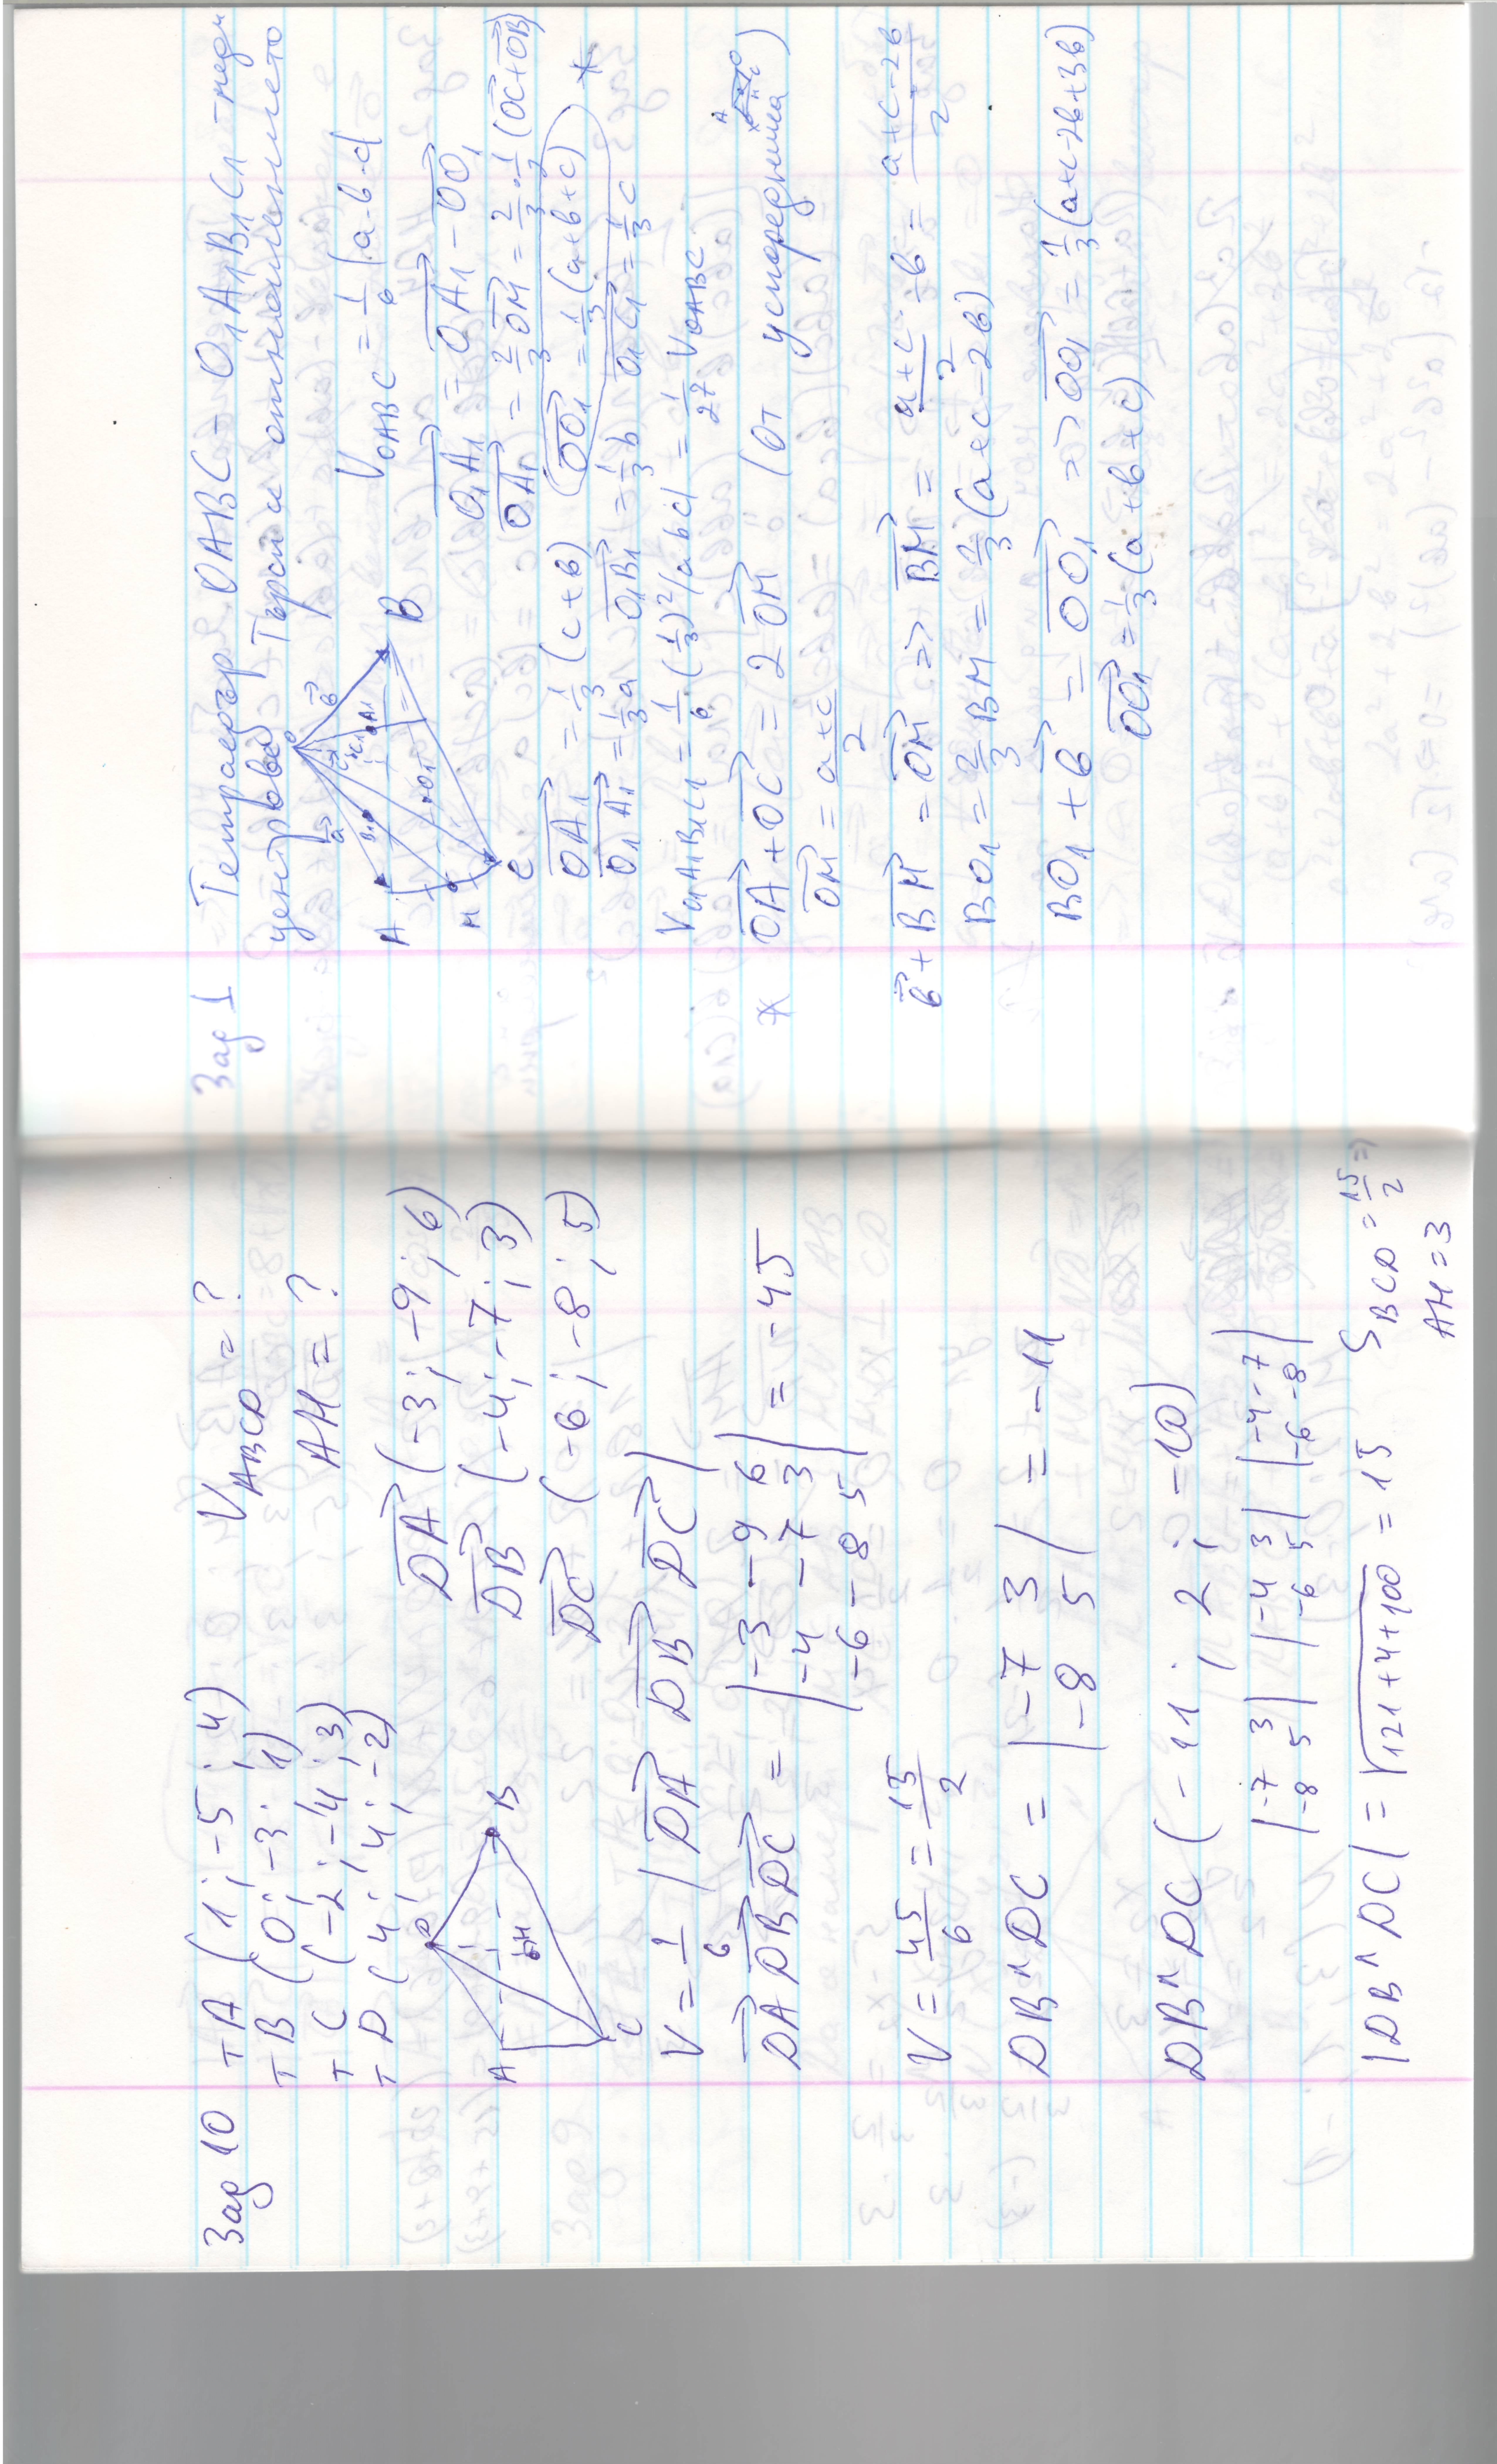 Зад 10 т A (1; -5; 4) V_ABCD = ?
т B (0; -3; 1) AH = ?
т C (-2; -4; 3)
т D (4; 4; -2)
DA (-3; -9; 6)
DB (-4; -7; 3)
DC (-6; -8; 5)
D
B
A
H
C
V = 1/6 |DA DB DC|
DA DB DC = |-3 -9 6
-4 -7 3
-6 -8 5| = -45
V = 45/6 = 15/2
DB ^ DC = |-7 3
-8 5| = -11
DB ^ DC (-11; 2; -10)
|-7 3
-8 5| |-4 3
-6 5| |-4 -7
-6 -8|
|DB ^ DC| = √121+4+100 = 15 S_BCD = 15/2 =>
AH = 3
Зад 1 Тетраедър OABC - O₁A₁B₁C₁ -
центрове Търси отношението
V_OABC = 1/6 |a·b·c|
O
a b
B₁ C₁ A₁
O₁
A
M
C
B
O₁A₁ = OA₁ - OO₁
OA₁ = 2/3 OM = 2/3 · 1/2 (OC + OB)
OA₁ = 1/3 (c + b) OO₁ = 1/3 (a + b + c) *
O₁A₁ = 1/3 a O₁B₁ = 1/3 b O₁C₁ = 1/3 c
V_O₁A₁B₁C₁ = 1/6 · (1/3)² |a b c| = 1/27 V_OABC
* OA + OC = 2 OM (От успоредника)
OM = a+c/2
b + BM = OM => BM = a+c/2 - b = a+c-2b/2
BO₁ = 2/3 BM = 1/3 (a + c - 2b)
BO₁ + b = OO₁ => OO₁ = 1/3 (a+c-2b+3b)
OO₁ = 1/3 (a + b + c)